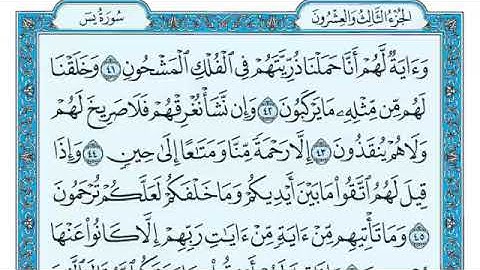 سُورَةُ يسٓ
الجُزْءُ الثَّالِثُ وَالعِشْرُونَ
وَءَايَةٌ لَّهُمْ أَنَّا حَمَلْنَا ذُرِّيَّتَهُمْ فِي ٱلْفُلْكِ ٱلْمَشْحُونِ ٤١ وَخَلَقْنَا
لَهُم مِّن مِّثْلِهِۦ مَا يَرْكَبُونَ ٤٢ وَإِن نَّشَأْ نُغْرِقْهُمْ فَلَا صَرِيخَ لَهُمْ
وَلَا هُمْ يُنقَذُونَ ٤٣ إِلَّا رَحْمَةً مِّنَّا وَمَتَٰعًا إِلَىٰ حِينٍ ٤٤ وَإِذَا
قِيلَ لَهُمُ ٱتَّقُوا۟ مَا بَيْنَ أَيْدِيكُمْ وَمَا خَلْفَكُمْ لَعَلَّكُمْ تُرْحَمُونَ
٤٥ وَمَا تَأْتِيهِم مِّنْ ءَايَةٍ مِّنْ ءَايَٰتِ رَبِّهِمْ إِلَّا كَانُوا۟ عَنْهَا